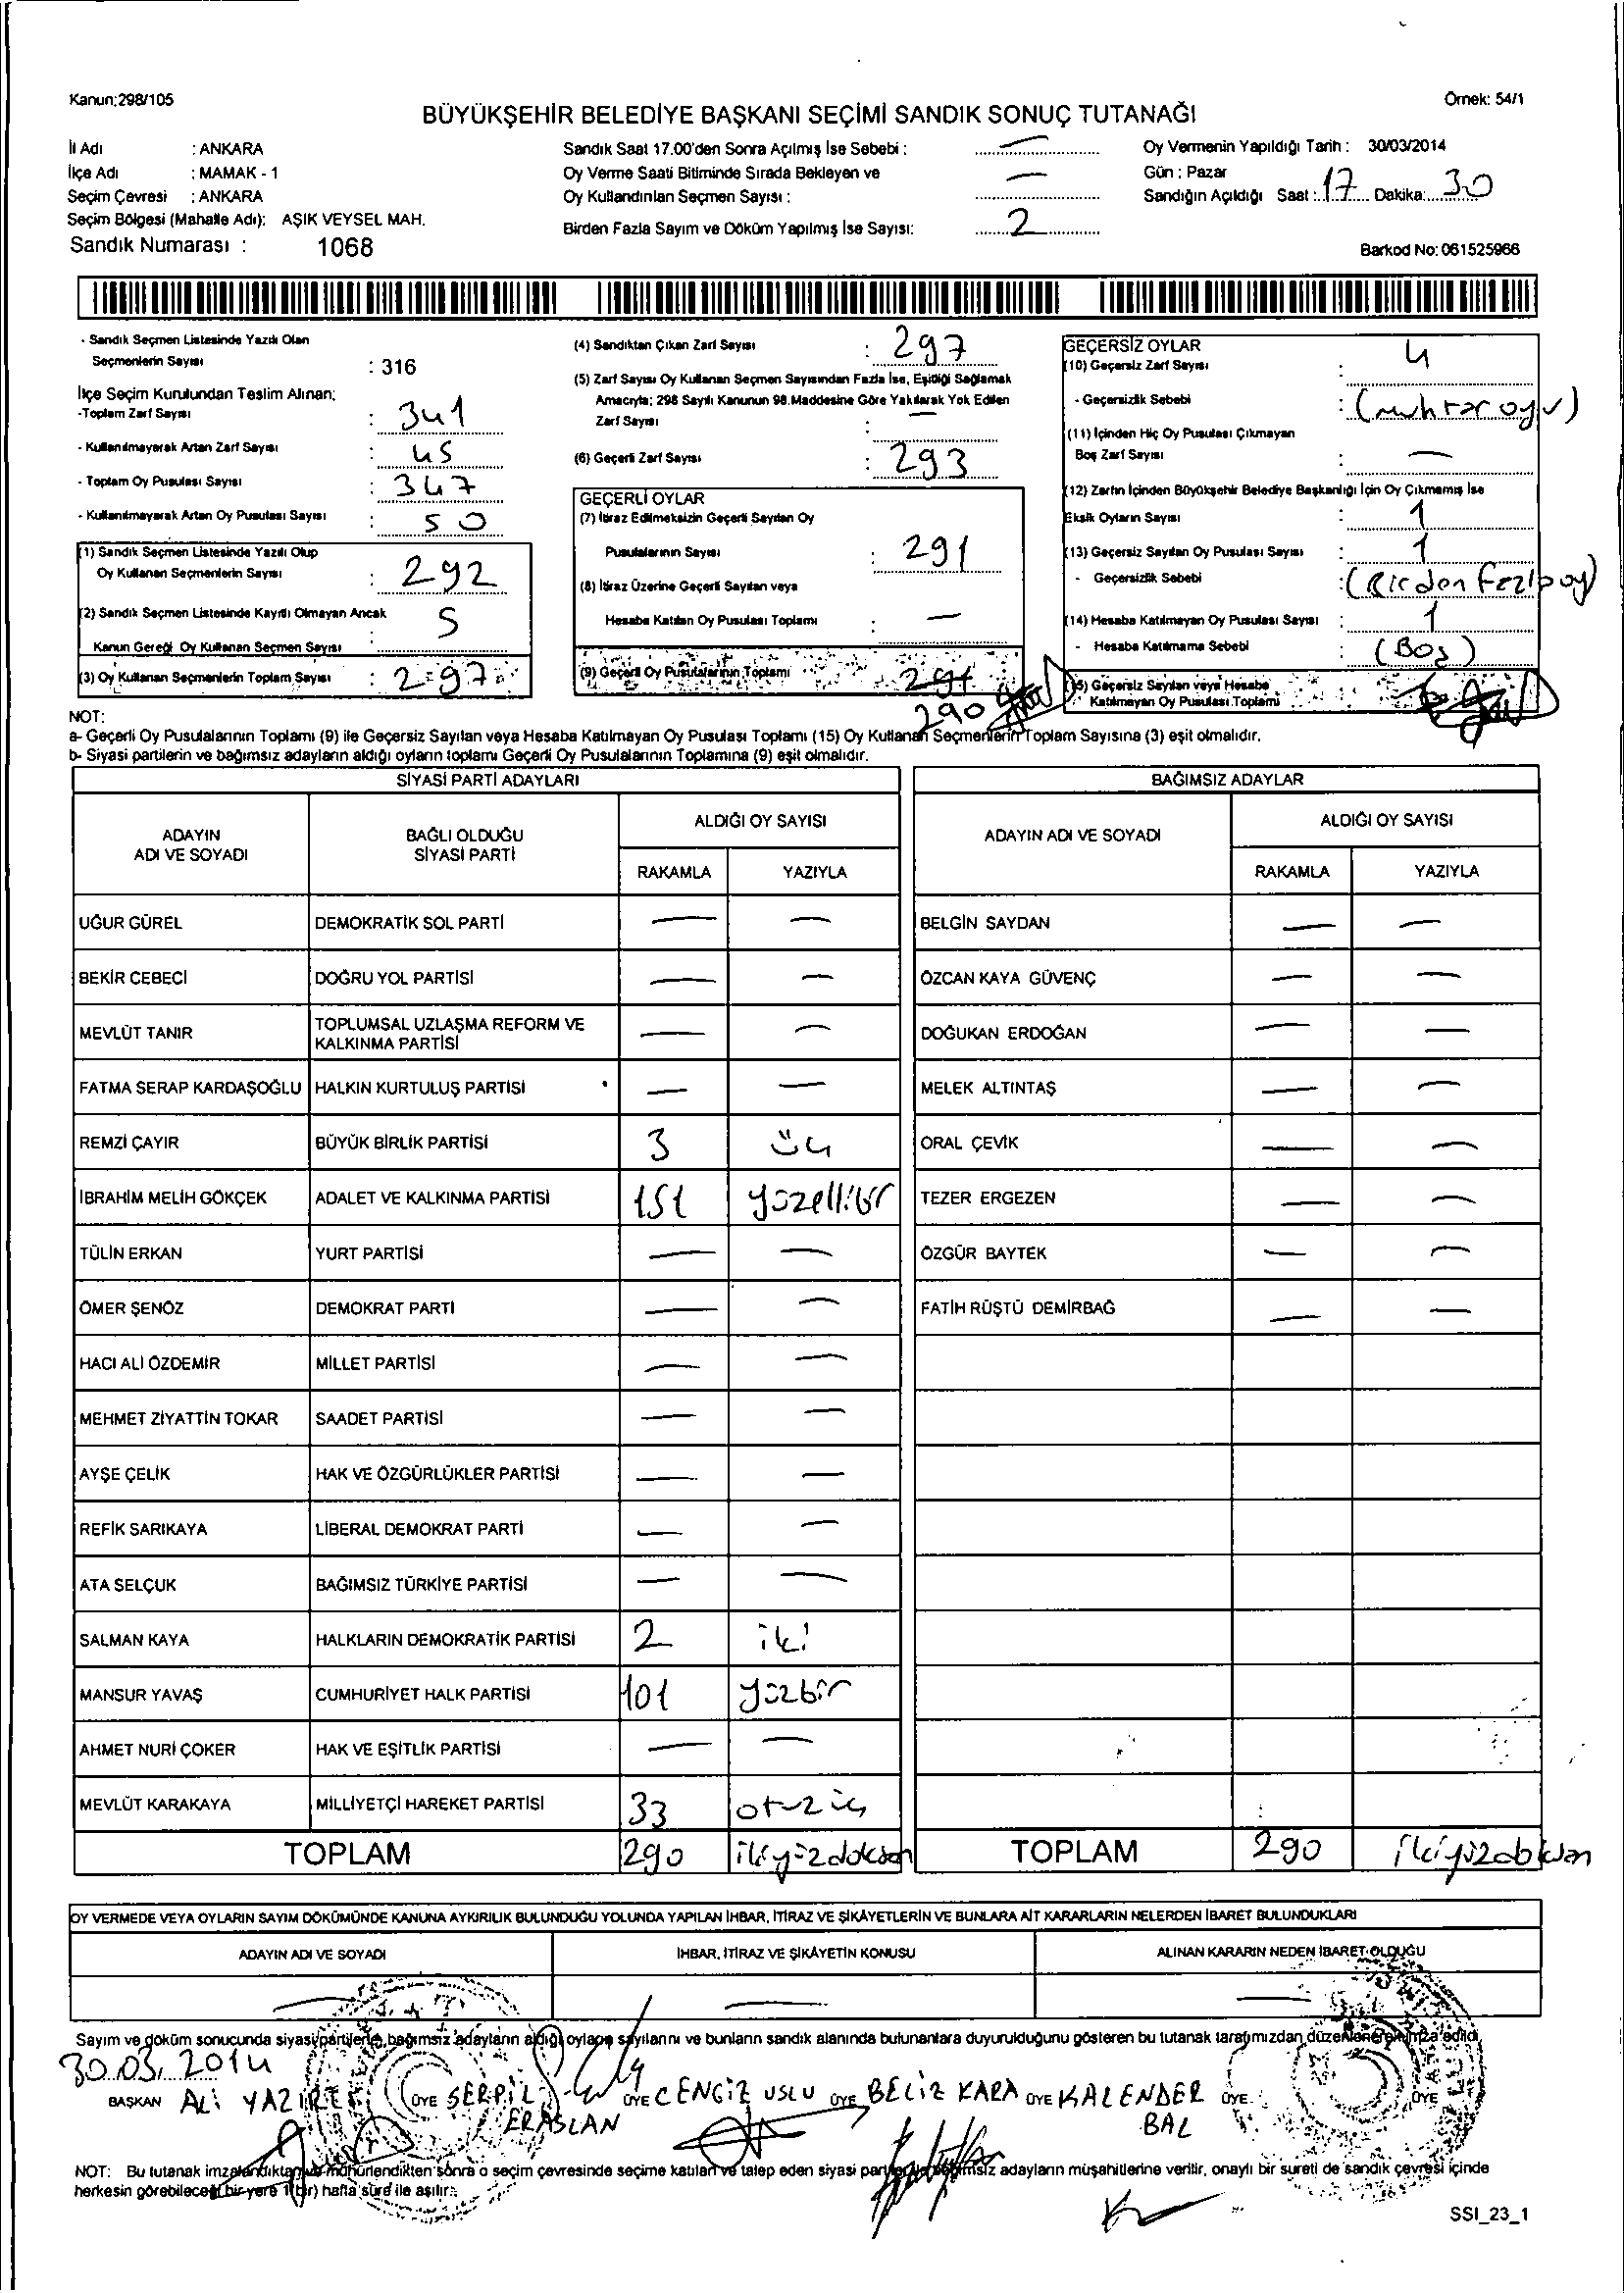 Kanun:298/105
Örnek: 54/1
BÜYÜKŞEHİR BELEDİYE BAŞKANI SEÇİMİ SANDIK SONUÇ TUTANAĞI
İl Adı : ANKARA
İlçe Adı : MAMAK - 1
Seçim Çevresi : ANKARA
Seçim Bölgesi (Mahalle Adı): AŞIK VEYSEL MAH.
Sandık Numarası : 1068
Sandık Saat 17.00'den Sonra Açılmış İse Sebebi : —
Oy Verme Saati Bitiminde Sırada Bekleyen ve
Oy Kullandırılan Seçmen Sayısı : —
Birden Fazla Sayım ve Döküm Yapılmış İse Sayısı: 2
Oy Vermenin Yapıldığı Tarih : 30/03/2014
Gün : Pazar
Sandığın Açıldığı Saat : 17 Dakika: 30
Barkod No: 061525966
- Sandık Seçmen Listesinde Yazılı Olan
Seçmenlerin Sayısı : 316
İlçe Seçim Kurulundan Teslim Alınan:
-Toplam Zarf Sayısı : 341
- Kullanılmayarak Artan Zarf Sayısı : 45
- Toplam Oy Pusulası Sayısı : 347
- Kullanılmayarak Artan Oy Pusulası Sayısı : 50
(1) Sandık Seçmen Listesinde Yazılı Olup
Oy Kullanan Seçmenlerin Sayısı : 292
(2) Sandık Seçmen Listesinde Kayıtlı Olmayan Ancak
Kanun Gereği Oy Kullanan Seçmen Sayısı : 5
(3) Oy Kullanan Seçmenlerin Toplam Sayısı : 297
(4) Sandıktan Çıkan Zarf Sayısı : 297
(5) Zarf Sayısı Oy Kullanan Seçmen Sayısından Fazla İse, Eşitliği Sağlamak
Amacıyla; 298 Sayılı Kanunun 98.Maddesine Göre Yakılarak Yok Edilen
Zarf Sayısı : —
(6) Geçerli Zarf Sayısı : 293
GEÇERLİ OYLAR
(7) İtiraz Edilmeksizin Geçerli Sayılan Oy
Pusulalarının Sayısı : 291
(8) İtiraz Üzerine Geçerli Sayılan veya
Hesaba Katılan Oy Pusulası Toplamı : —
(9) Geçerli Oy Pusulalarının Toplamı : 291
290
GEÇERSİZ OYLAR
(10) Geçersiz Zarf Sayısı : 4
- Geçersizlik Sebebi : (muhtar oyu)
(11) İçinden Hiç Oy Pusulası Çıkmayan
Boş Zarf Sayısı : —
(12) Zarfın İçinden Büyükşehir Belediye Başkanlığı İçin Oy Çıkmamış İse
Eksik Oyların Sayısı : 1
(13) Geçersiz Sayılan Oy Pusulası Sayısı : 1
- Geçersizlik Sebebi : (Birden Fazla oy)
(14) Hesaba Katılmayan Oy Pusulası Sayısı : 1
- Hesaba Katılmama Sebebi : (Boş)
(15) Geçersiz Sayılan veya Hesaba
Katılmayan Oy Pusulası Toplamı
NOT:
a- Geçerli Oy Pusulalarının Toplamı (9) ile Geçersiz Sayılan veya Hesaba Katılmayan Oy Pusulası Toplamı (15) Oy Kullanan Seçmenlerin Toplam Sayısına (3) eşit olmalıdır.
b- Siyasi partilerin ve bağımsız adayların aldığı oyların toplamı Geçerli Oy Pusulalarının Toplamına (9) eşit olmalıdır.
SİYASİ PARTİ ADAYLARI
ADAYIN ADI VE SOYADI BAĞLI OLDUĞU SİYASİ PARTİ ALDIĞI OY SAYISI
RAKAMLA YAZIYLA
UĞUR GÜREL DEMOKRATİK SOL PARTİ — —
BEKİR CEBECİ DOĞRU YOL PARTİSİ — —
MEVLÜT TANIR TOPLUMSAL UZLAŞMA REFORM VE KALKINMA PARTİSİ — —
FATMA SERAP KARDAŞOĞLU HALKIN KURTULUŞ PARTİSİ — —
REMZİ ÇAYIR BÜYÜK BİRLİK PARTİSİ 3 üç
İBRAHİM MELİH GÖKÇEK ADALET VE KALKINMA PARTİSİ 151 yüzellibir
TÜLİN ERKAN YURT PARTİSİ — —
ÖMER ŞENÖZ DEMOKRAT PARTİ — —
HACI ALİ ÖZDEMİR MİLLET PARTİSİ — —
MEHMET ZİYATTİN TOKAR SAADET PARTİSİ — —
AYŞE ÇELİK HAK VE ÖZGÜRLÜKLER PARTİSİ — —
REFİK SARIKAYA LİBERAL DEMOKRAT PARTİ — —
ATA SELÇUK BAĞIMSIZ TÜRKİYE PARTİSİ — —
SALMAN KAYA HALKLARIN DEMOKRATİK PARTİSİ 2 iki
MANSUR YAVAŞ CUMHURİYET HALK PARTİSİ 101 yüzbir
AHMET NURİ ÇOKER HAK VE EŞİTLİK PARTİSİ — —
MEVLÜT KARAKAYA MİLLİYETÇİ HAREKET PARTİSİ 33 otuz üç
TOPLAM 290 ikiyüzdoksan
BAĞIMSIZ ADAYLAR
ADAYIN ADI VE SOYADI ALDIĞI OY SAYISI
RAKAMLA YAZIYLA
BELGİN SAYDAN — —
ÖZCAN KAYA GÜVENÇ — —
DOĞUKAN ERDOĞAN — —
MELEK ALTINTAŞ — —
ORAL ÇEVİK — —
TEZER ERGEZEN — —
ÖZGÜR BAYTEK — —
FATİH RÜŞTÜ DEMİRBAĞ — —
TOPLAM 290 ikiyüzdoksan
OY VERMEDE VEYA OYLARIN SAYIM DÖKÜMÜNDE KANUNA AYKIRILIK BULUNDUĞU YOLUNDA YAPILAN İHBAR, İTİRAZ VE ŞİKÂYETLERİN VE BUNLARA AİT KARARLARIN NELERDEN İBARET BULUNDUKLARI
ADAYIN ADI VE SOYADI İHBAR, İTİRAZ VE ŞİKÂYETİN KONUSU ALINAN KARARIN NEDEN İBARET OLDUĞU
— — —
Sayım ve döküm sonucunda siyasi partilerle, bağımsız adayların aldığı oyların sayılarını ve bunların sandık alanında bulunanlara duyurulduğunu gösteren bu tutanak tarafımızdan düzenlenerek imza edildi.
30.03.2014
BAŞKAN ALİ ÜYE SERPİL ERASLAN ÜYE CENGİZ USLU ÜYE BELİZ KARA ÜYE KALENDER BAL ÜYE ÜYE
NOT: Bu tutanak imzalandıktan ve mühürlendikten sonra o seçim çevresinde seçime katılan ve talep eden siyasi parti ve bağımsız adayların müşahitlerine verilir, onaylı bir sureti de sandık çevresi içinde
herkesin görebileceği bir yere 1 (bir) hafta süre ile asılır.
SSI_23_1